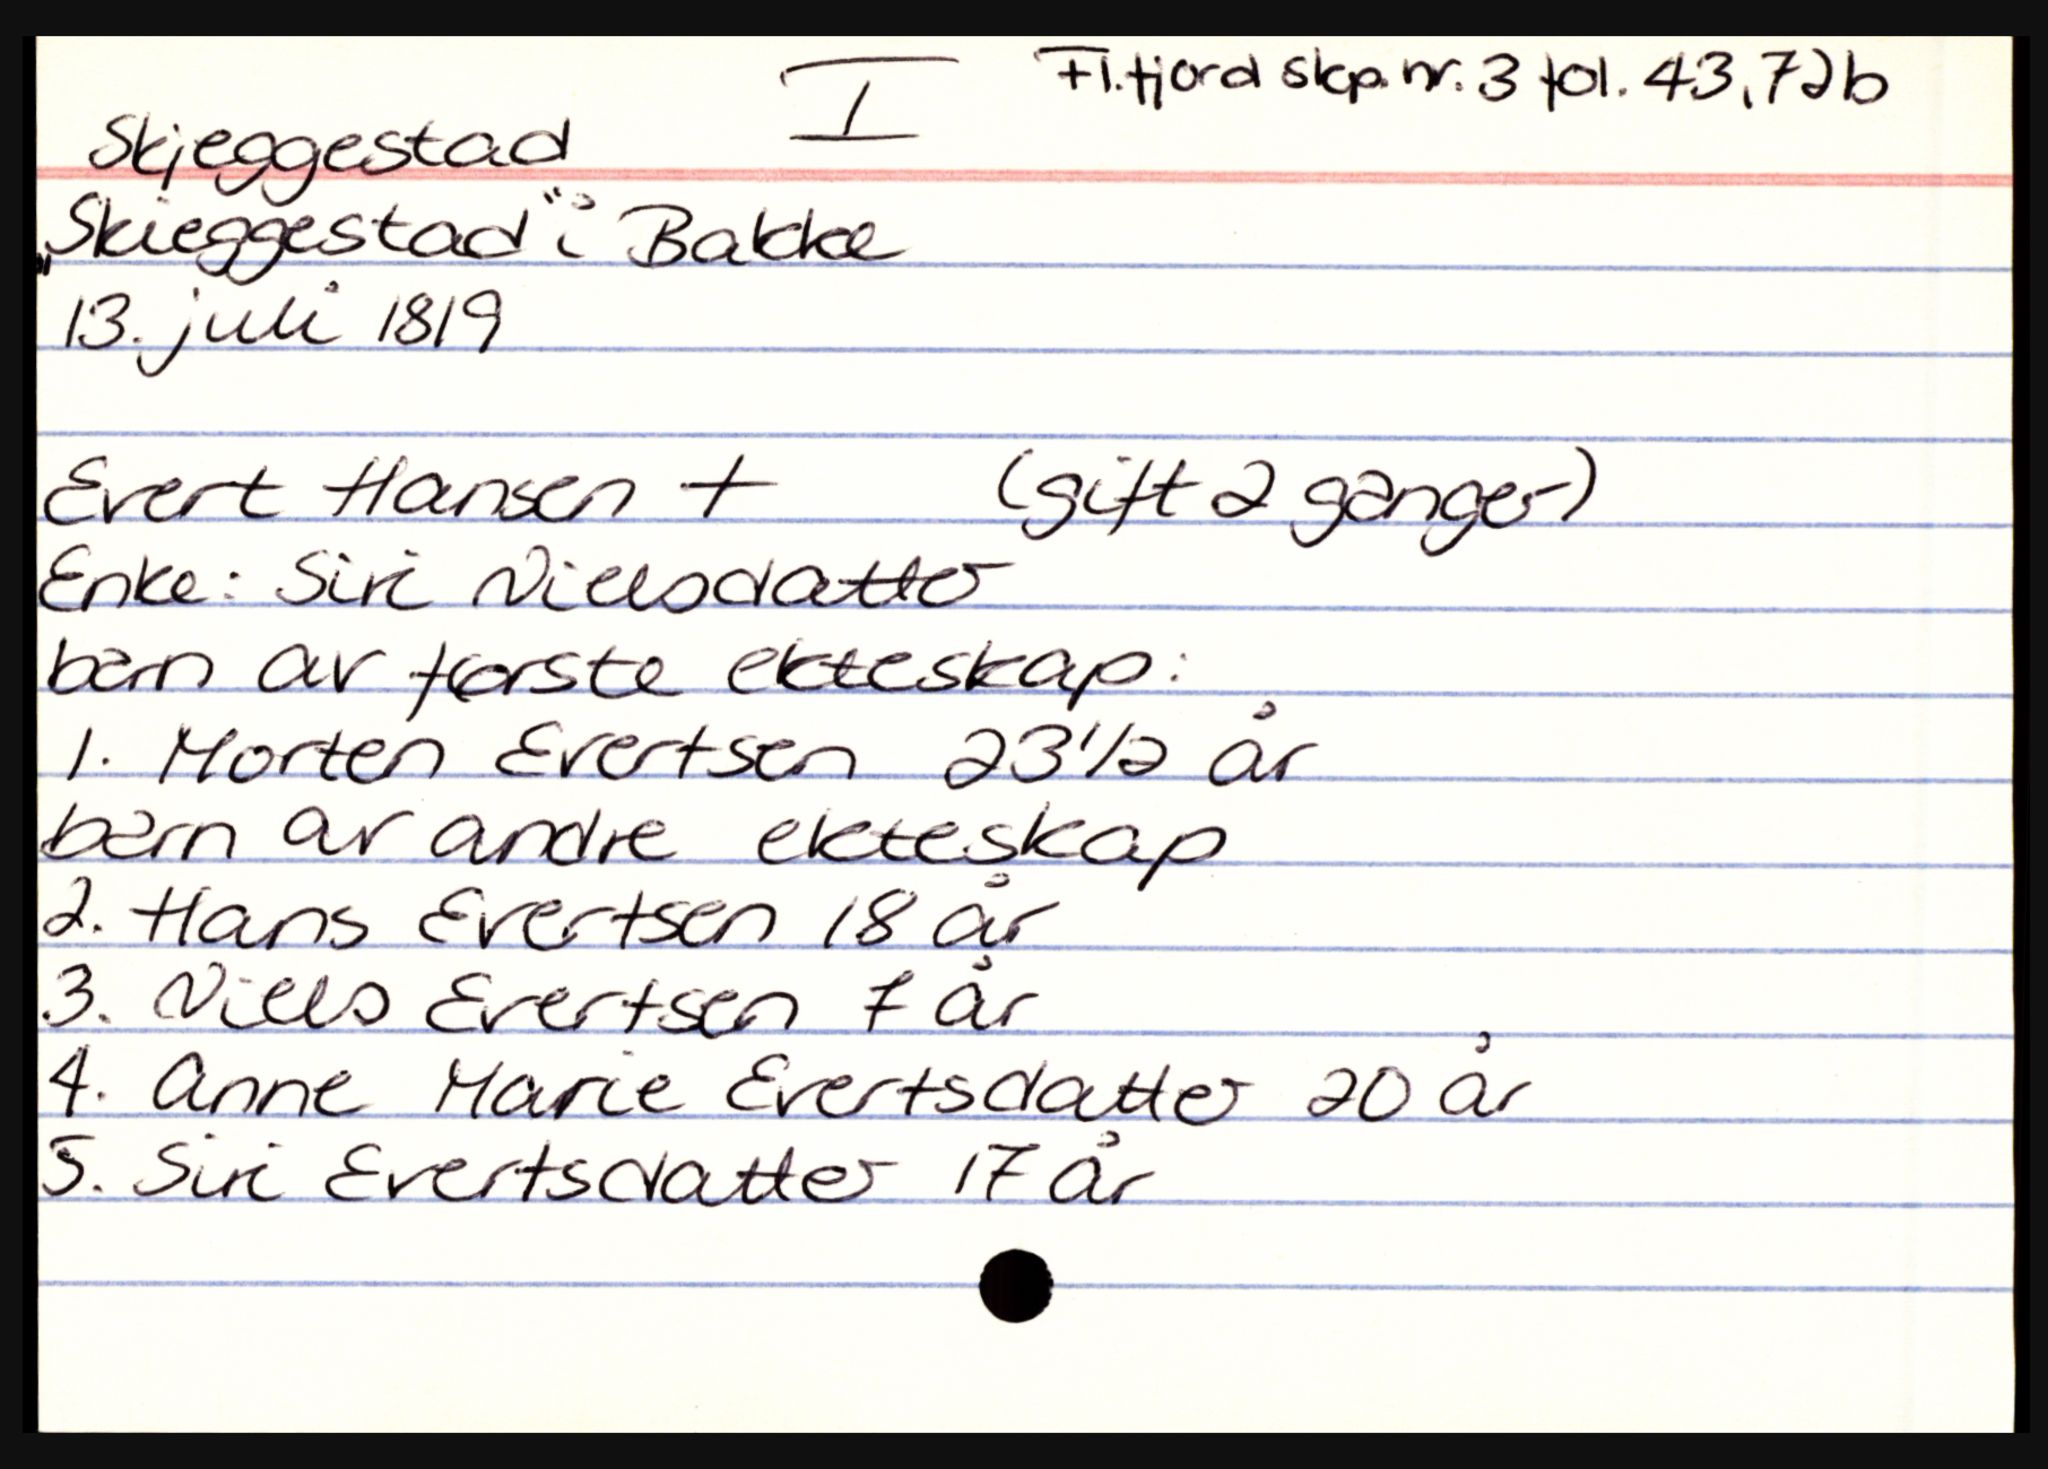 I Fl.fjord skp. nr. 3 fol. 43, 72b
Skjeggestad
„Skieggestad" i Bakke
13. juli 1819
Evert Hansen + (gift 2 ganger)
Enke: Siri Nielsdatter
barn av første ekteskap:
1. Morten Evertsen 23 1/2 år
barn av andre ekteskap
2. Hans Evertsen 18 år
3. Niels Evertsen 7 år
4. Anne Marie Evertsdatter 20 år
5. Siri Evertsdatter 17 år